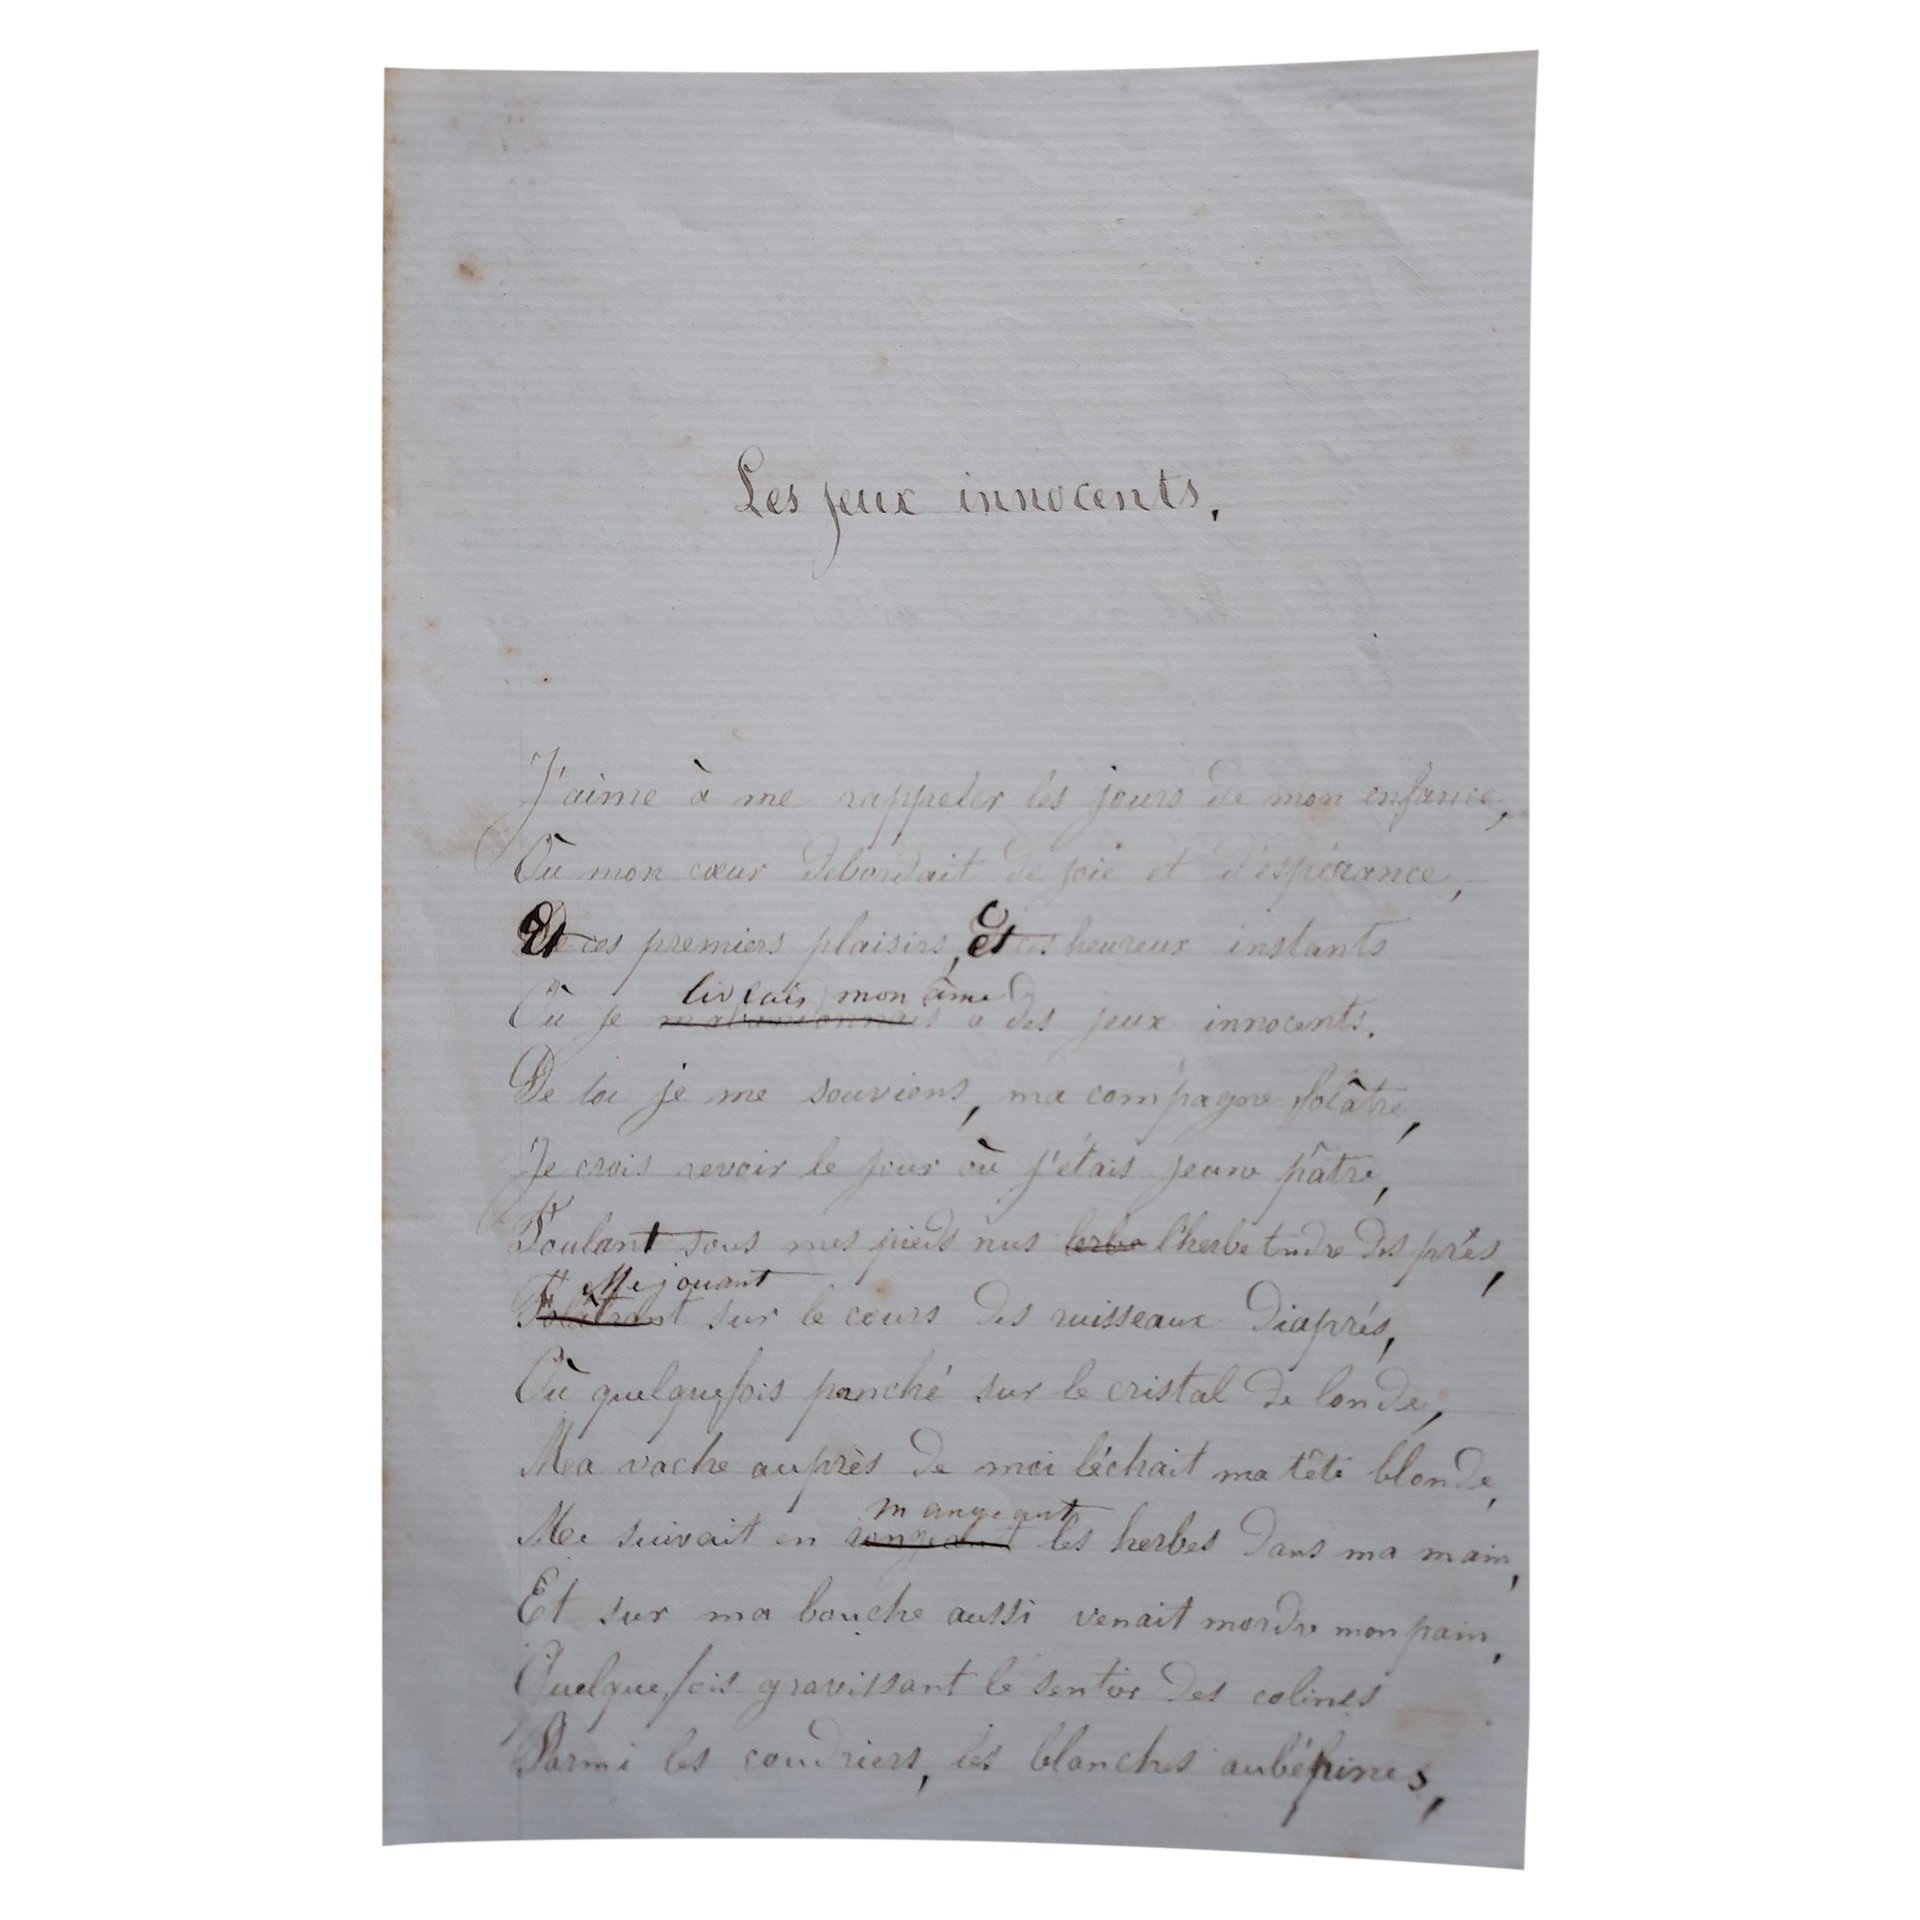 Les jeux innocents.
J'aime à me rappeler les jours de mon enfance,
Où mon cœur debordait de joie et d'espérance,
Et ces premiers plaisirs, et ces heureux instants
livrais mon âme
Où je m'abandonnais à des jeux innocents.
De toi je me souviens, ma compagne folâtre,
Je crois revoir le jour où j'étais jeune pâtre,
Foulant sous mes pieds nus lerbe l'herbe tendre des près,
Me jouant
Folâtrant sur le cours des ruisseaux diaprés,
Où quelquefois panché sur le cristal de londe,
Ma vache auprès de moi léchait ma tête blonde,
mangeant
Me suivait en rongeant les herbes dans ma main,
Et sur ma bouche aussi venait mordre mon pain,
Quelquefois gravissant le sentier des colines
Parmi les coudriers, les blanches aubépines,